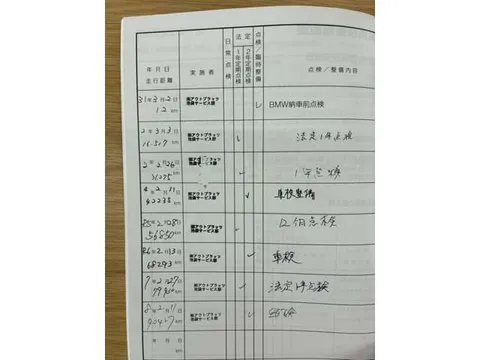 年月日
走行距離
実施者
日常点検
法定
1年定期点検
2年定期点検
点検／臨時整備
点検／整備内容
31年3月2日
12 km
㈱アウトプラッツ
池袋サービス部
BMW納車前点検
2年3月3日
16,517 km
㈱アウトプラッツ
池袋サービス部
法定1年点検
年2月26日
31275 km
㈱アウトプラッツ
池袋サービス部
1年点検
4年2月11日
42238 km
㈱アウトプラッツ
池袋サービス部
車検整備
2月28日
56850 km
㈱アウトプラッツ
池袋サービス部
12ヶ月点検
R6年2月13日
68293 km
㈱アウトプラッツ
池袋サービス部
車検
7年2月27日
km
㈱アウトプラッツ
池袋サービス部
法定1年点検
8年2月11日
90427 km
㈱アウトプラッツ
池袋サービス部
年月日
km